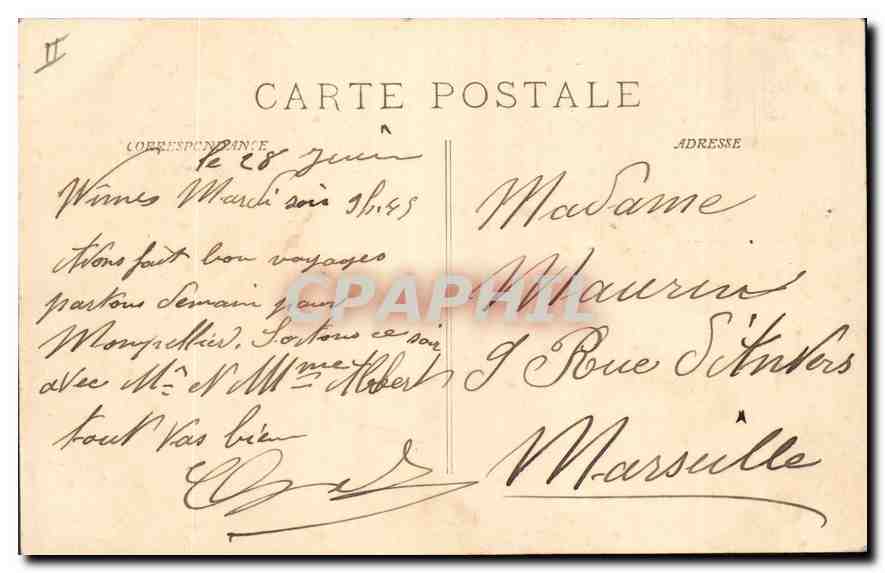 II
CARTE POSTALE
CORRESPONDANCE
ADRESSE
le 28 Juin
Nîmes Mardi soir 9h.45
Avons fait bon voyages
partons demain pour
Montpellier. Sortons ce soir
avec Mr N Mme Albert
tout vas bien
Madame
Maurin
9 Rue d'Anvers
Marseille
CPAPHIL